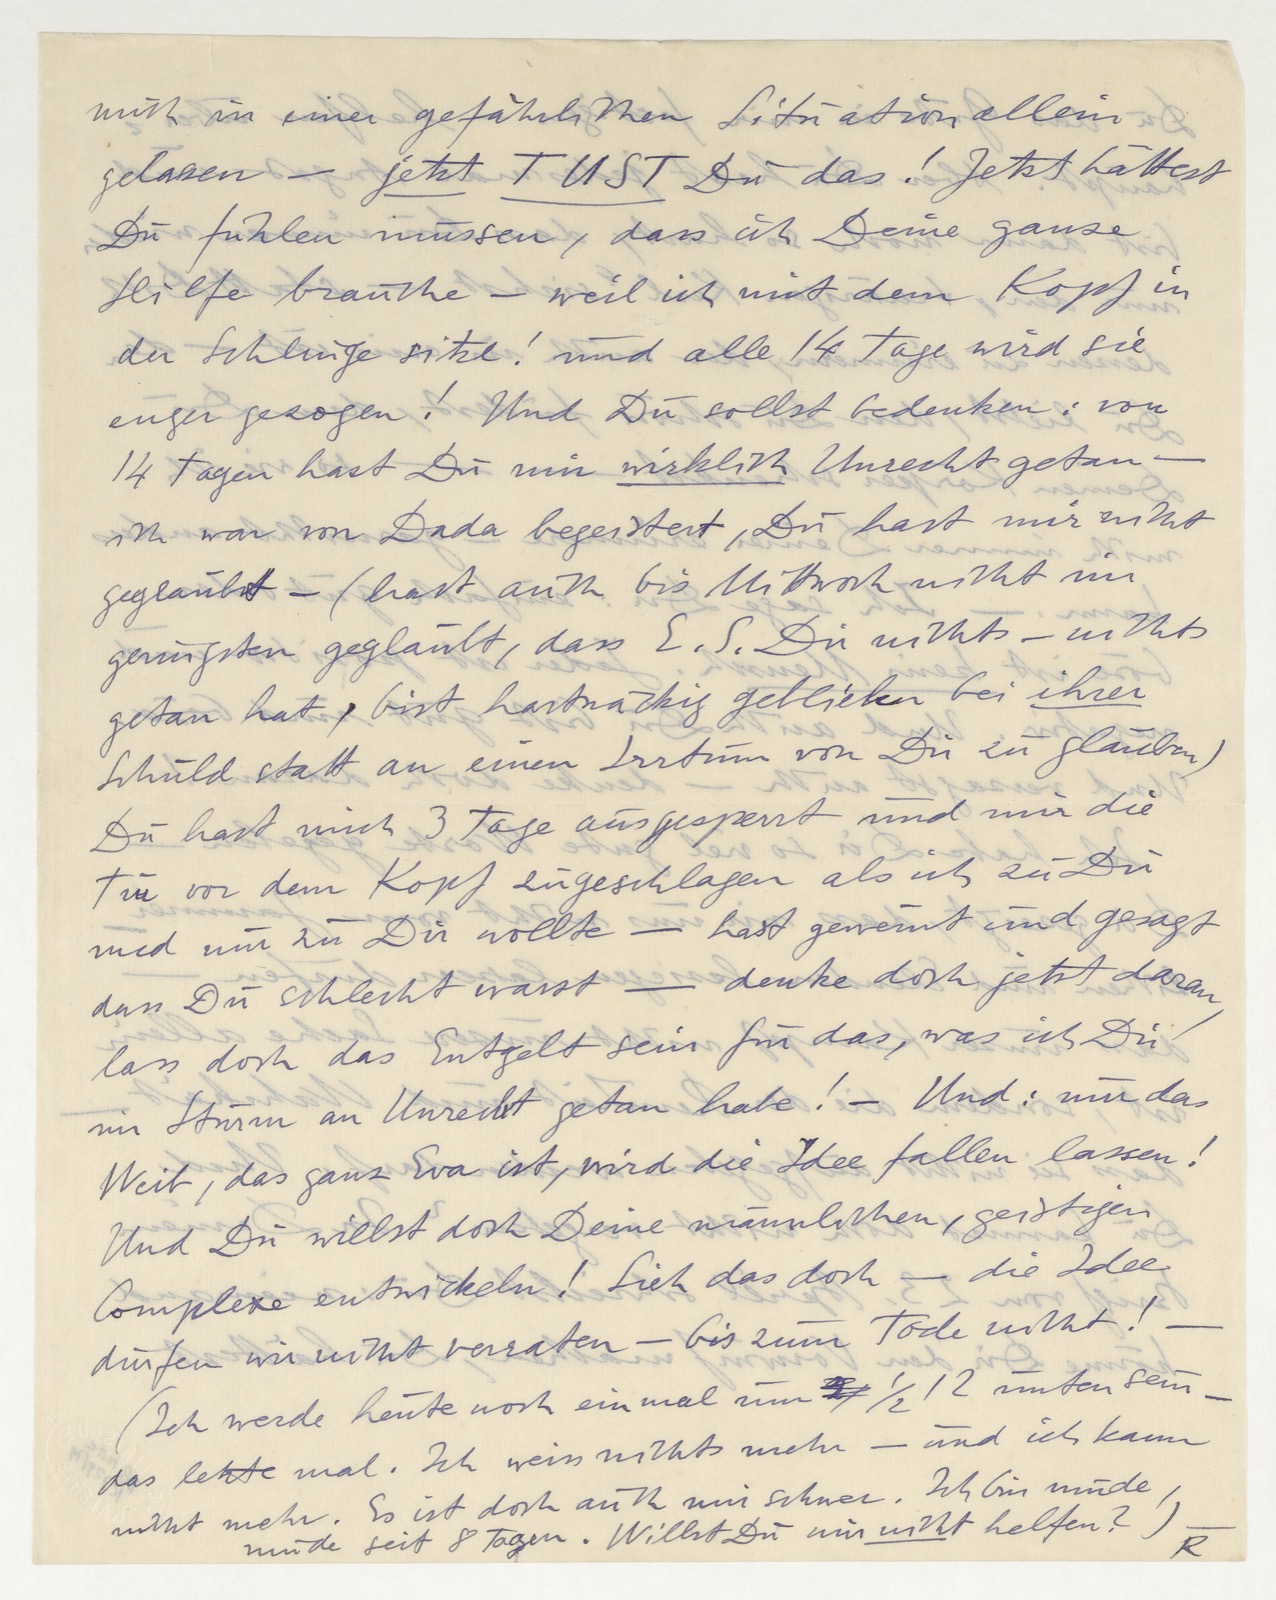 mich in einer gefährlichen Situation allein
gelassen — jetzt TUST Du das! Jetzt hättest
Du fühlen müssen, dass ich Deine ganze
Hilfe brauche — weil ich mit dem Kopf in
der Schlinge sitze! und alle 14 Tage wird sie
enger gezogen! Und Du sollst bedenken: vor
14 Tagen hast Du mir wirklich Unrecht getan —
ich war von Dada begeistert, Du hast mir nicht
geglaubt — (hast auch bis Mittwoch nicht im
geringsten geglaubt, dass E. S. Dir nichts — nichts
getan hat, bist hartnäckig geblieben bei ihrer
Schuld statt an einen Irrtum von Dir zu glauben)
Du hast mich 3 Tage ausgesperrt und mir die
Tür vor dem Kopf zugeschlagen als ich zu Dir
und nur zu Dir wollte — hast geweint und gesagt
dass Du schlecht warst — denke doch jetzt daran,
lass doch das Entgelt sein für das, was ich Dir
im Sturm an Unrecht getan habe! — Und: nur das
Weib, das ganz Eva ist, wird die Idee fallen lassen!
Und Du willst doch Deine männlichen, geistigen
Complexe entwickeln! Sieh das doch — die Idee
dürfen wir nicht verraten — bis zum Tode nicht! —
(Ich werde heute noch einmal um 1/2 12 unten sein —
das letzte mal. Ich weiss nichts mehr — und ich kann
nicht mehr. Es ist doch auch mir schwer. Ich bin müde,
müde seit 8 Tagen. Willst Du mir nicht helfen?)
R